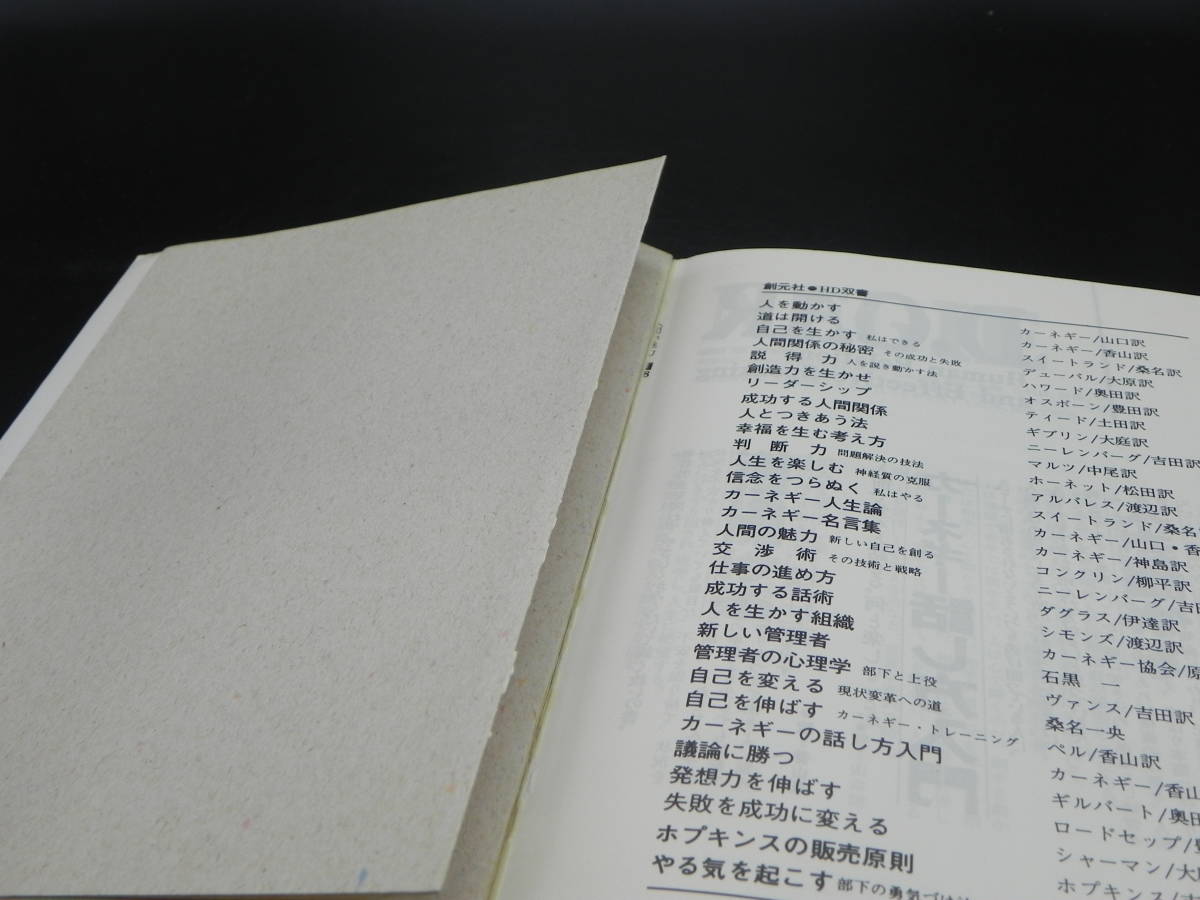 創元社●HD双書
人を動かす カーネギー/山口訳
道は開ける カーネギー/香山訳
自己を生かす 私はできる スイートランド/桑名訳
人間関係の秘密 その成功と失敗 デューバル/大原訳
説得力 人を説き動かす法 ハワード/奥田訳
創造力を生かせ オスボーン/豊田訳
リーダーシップ ティード/土田訳
成功する人間関係 ギブリン/大庭訳
人とつきあう法 ニーレンバーグ/吉田訳
幸福を生む考え方 マルツ/中尾訳
判断力 問題解決の技法 ホーネット/松田訳
人生を楽しむ 神経質の克服 アルバレス/渡辺訳
信念をつらぬく 私はやる スイートランド/桑名
カーネギー人生論 カーネギー/山口・香
カーネギー名言集 カーネギー/神島訳
人間の魅力 新しい自己を創る コンクリン/柳平訳
交渉術 その技術と戦略 ニーレンバーグ/吉田
仕事の進め方 ダグラス/伊達訳
成功する話術 シモンズ/渡辺訳
人を生かす組織 カーネギー協会/原
新しい管理者 石黒 一
管理者の心理学 部下と上役 ヴァンス/吉田訳
自己を変える 現状変革への道 桑名一央
自己を伸ばす カーネギー・トレーニング ペル/香山訳
カーネギーの話し方入門 カーネギー/香山
議論に勝つ ギルバート/奥田
発想力を伸ばす ロードセップ/豊
失敗を成功に変える シャーマン/大
ホプキンスの販売原則 ホプキンス/
やる気を起こす 部下の勇気づけ